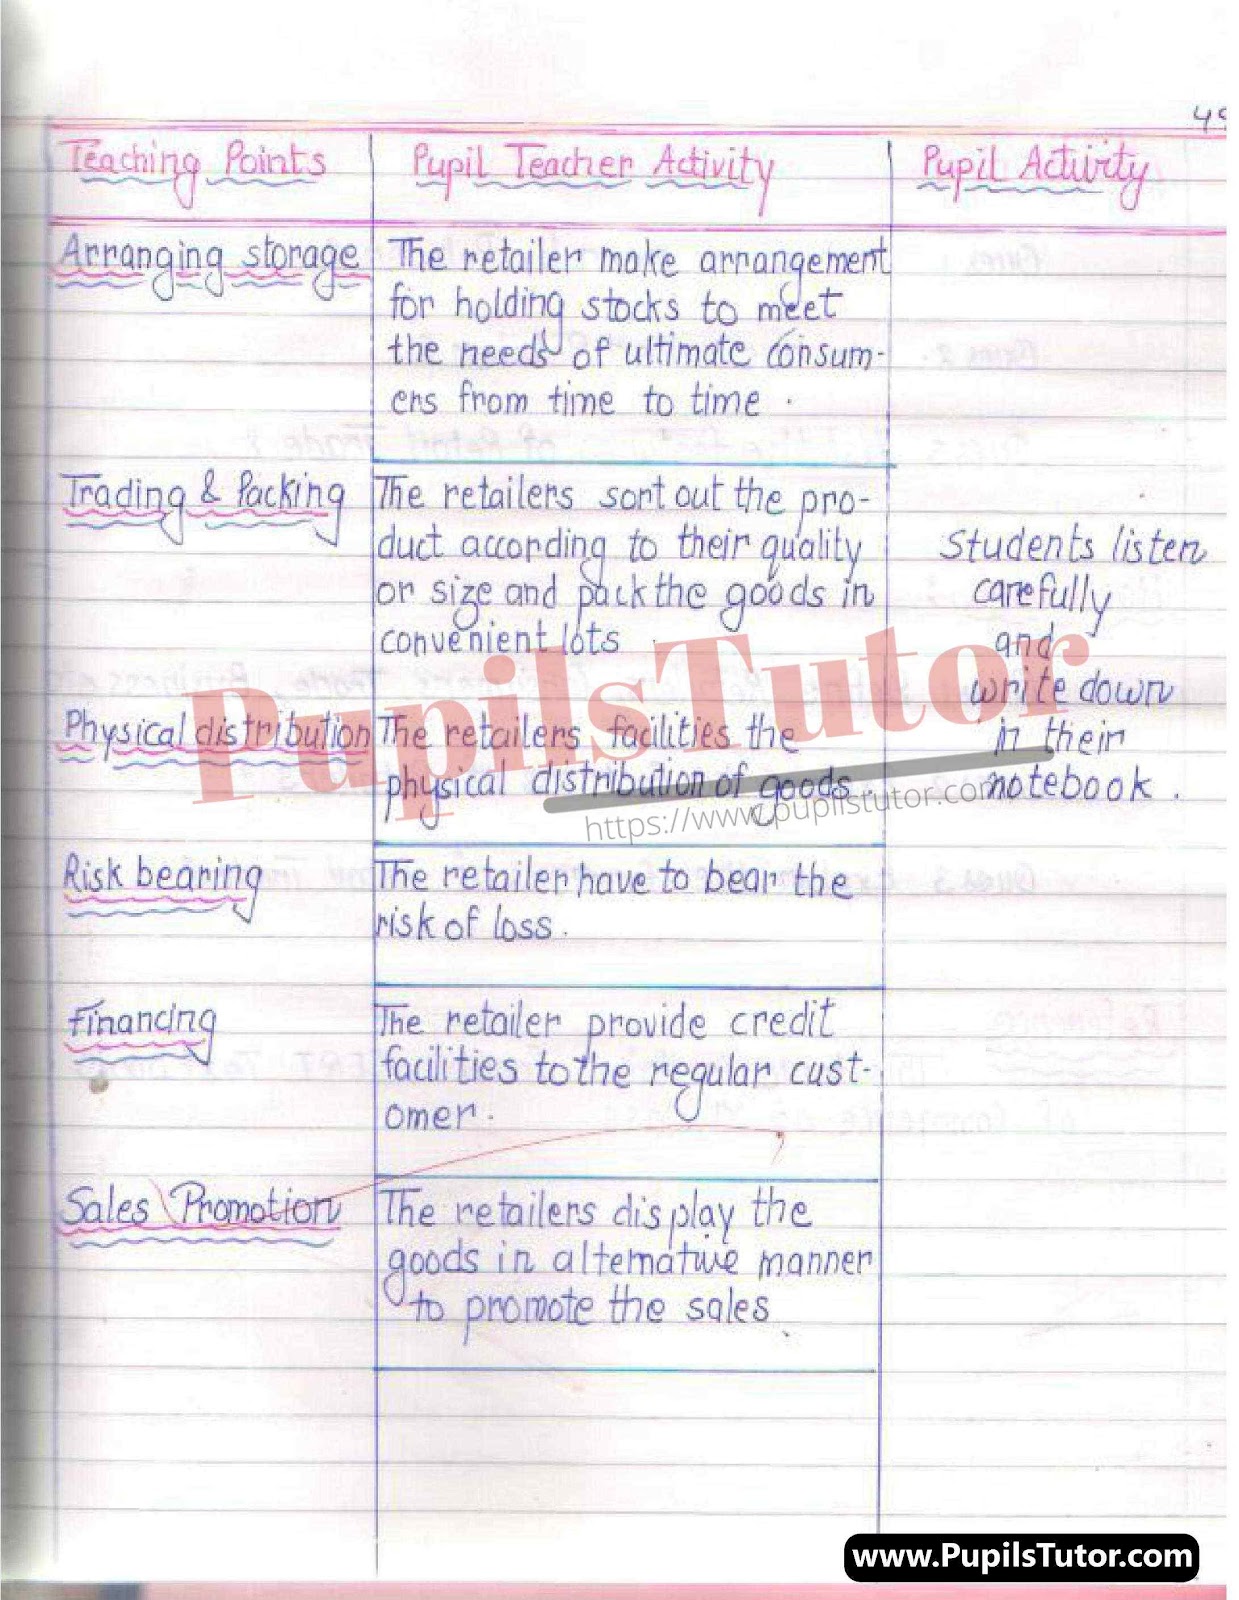 49
Teaching Points
Pupil Teacher Activity
Pupil Activity
Arranging storage
The retailer make arrangement
for holding stocks to meet
the needs of ultimate Consum-
ers from time to time .
Trading & Packing
The retailers sort out the pro-
duct according to their quality
or size and pack the goods in
convenient lots .
Physical distribution
The retailers facilities the
physical distribution of goods .
Students listen
carefully
and
write down
in their
notebook .
Risk bearing
The retailer have to bear the
risk of loss .
Financing
The retailer provide credit
facilities to the regular cust-
omer .
Sales Promotion
The retailers display the
goods in alternative manner
to promote the sales .
PupilsTutor
https://www.pupilstutor.com
www.PupilsTutor.com